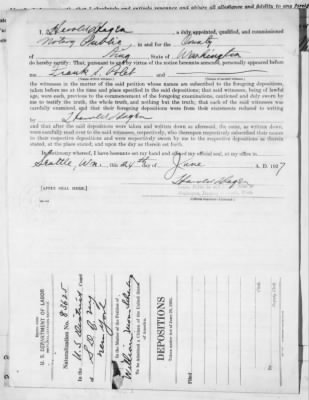 I, Harold Hagen, a duly appointed, qualified, and commissioned
Notary Public, in and for the County
of King, State of Washington
do hereby certify. That, pursuant to and by virtue of the notice hereunto annexed, personally appeared before
me Frank
the witnesses in the matter of the said petition whose names are subscribed to the foregoing depositions,
taken before me at the time and place specified in the said depositions; that said witnesses, being of lawful
age, were each, previous to the commencement of the foregoing examinations, cautioned and duly sworn by
me to testify the truth, the whole truth, and nothing but the truth; that each of the said witnesses was
carefully examined, and that their foregoing depositions were from their statements reduced to writing
by Harold Hagen
and that after the said depositions were taken and written down as aforesaid, the same, as written,
were carefully read over to the said witnesses, respectively, who thereupon respectively subscribed their names
to their respective depositions and were respectively sworn by me to the respective depositions as therein
stated, at the place stated, and upon the day as therein set forth.
In testimony whereof, I have hereunto set my hand and affixed my official seal, at my office in
Seattle, Wn., this 24th day of June A. D. 1927
Harold Hagen
[AFFIX SEAL HERE.]
U. S. DEPARTMENT OF LABOR
Naturalization No. 83625
In the U.S. District Court
of S.D. of N.Y.
New York
In the Matter of the Petition of
William
To be admitted a Citizen of the United States
of America.
DEPOSITIONS
Taken under Act of June 29, 1906.
Filed
Clerk.
Deputy Clerk.